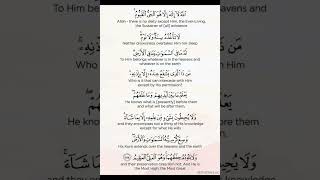 اللَّهُ لَا إِلَٰهَ إِلَّا هُوَ الْحَيُّ الْقَيُّومُ
Allah - there is no deity except Him, the Ever-Living,
the Sustainer of [all] existence
لَا تَأْخُذُهُ سِنَةٌ وَلَا نَوْمٌ
Neither drowsiness overtakes Him nor sleep
لَهُ مَا فِي السَّمَاوَاتِ وَمَا فِي الْأَرْضِ
To Him belongs whatever is in the heavens and
whatever is on the earth
مَنْ ذَا الَّذِي يَشْفَعُ عِنْدَهُ إِلَّا بِإِذْنِهِ
Who is it that can intercede with Him
except by His permission?
يَعْلَمُ مَا بَيْنَ أَيْدِيهِمْ وَمَا خَلْفَهُمْ
He knows what is [presently] before them
and what will be after them,
وَلَا يُحِيطُونَ بِشَيْءٍ مِنْ عِلْمِهِ إِلَّا بِمَا شَاءَ
and they encompass not a thing of His knowledge
except for what He wills
وَسِعَ كُرْسِيُّهُ السَّمَاوَاتِ وَالْأَرْضَ
His Kursi extends over the heavens and the earth
وَلَا يَئُودُهُ حِفْظُهُمَا وَهُوَ الْعَلِيُّ الْعَظِيمُ
and their preservation tires Him not. And He is
the Most High, the Most Great